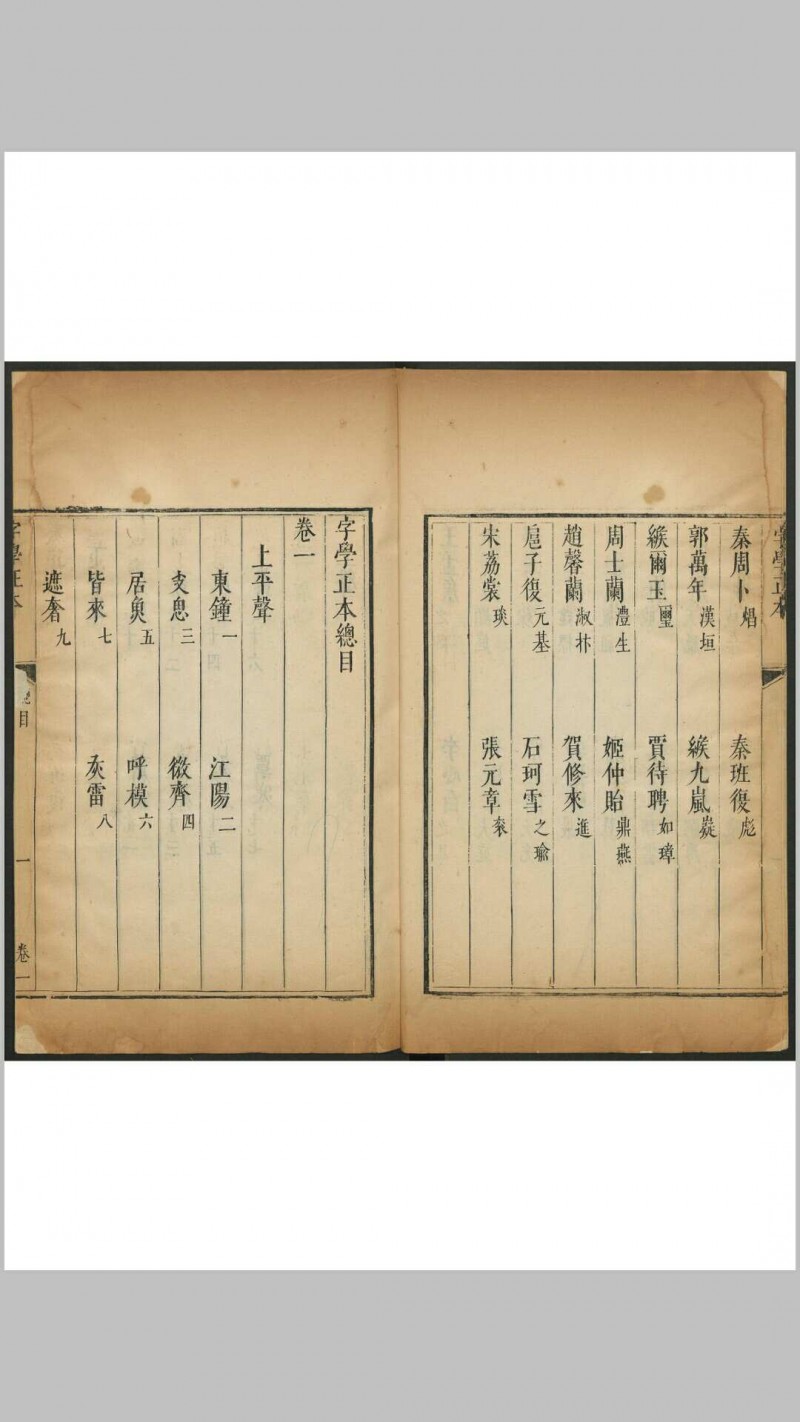 秦周卜 焻 秦班復 彪
郭萬年 漢垣 緱九嵐 嶷
緱爾玉 璽 賈待聘 如璋
周士蘭 澧生 姬仲貽 鼎燕
趙馨蘭 淑 賀修來 進
扈子復 元基 石珂雪 之瑜
宋荔裳 琰 張元章
字學正本
字學正本總目
卷一
上平聲
東鐘 一 江陽 二
支思 三 微齊 四
居魚 五 呼模 六
皆來 七 灰雷 八
遮奢 九
字學正本 總目 一 卷一